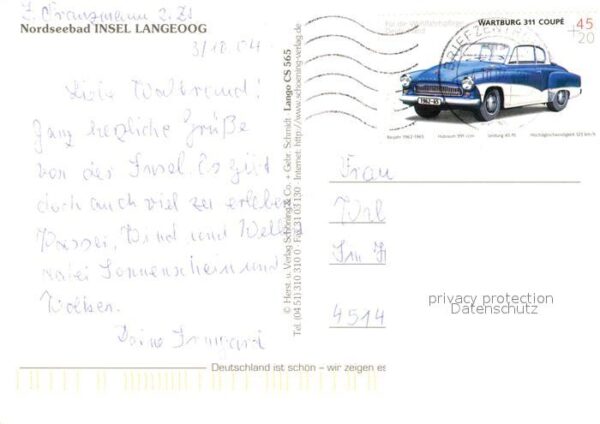 I. Franzmann z. Zt
Nordseebad INSEL LANGEOOG
3/10.04.
Liebe Waltraud!
Ganz herzliche Grüße
von der Insel. Es gibt
doch auch viel zu erleben
Wasser, Wind und Wellen
Sonnenschein und
Wolken.
Deine Irmgard
© Herst. u. Verlag Schöning & Co. + Gebr. Schmidt · Lango CS 565
Tel. (04 51) 310 310 0 · Fax 31 03 130 · Internet: http://www.schoening-verlag.de
Für die Wohlfahrtspflege
Deutschland
WARTBURG 311 COUPÉ
45
+20
BRIEFZENTRUM
1962-65
Baujahr 1962-1965 Hubraum 991 ccm Leistung 45 PS Höchstgeschwindigkeit 125 km/h
Frau
Im
4514
privacy protection
Datenschutz
Deutschland ist schön – wir zeigen es